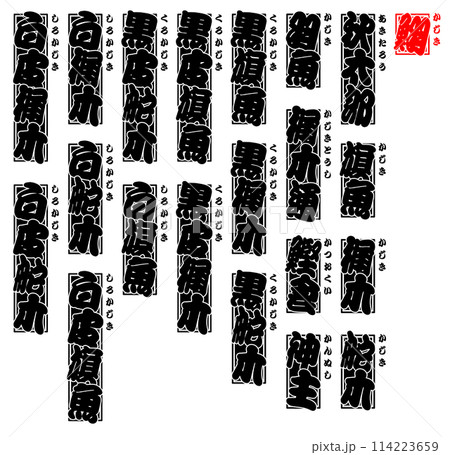 かじき
秋太郎
あきたろう
旗魚
かじき
梶木
かじき
舵木
かじき
羽魚
かじき
梶木通
かじきとうし
鰹
かつおくい
神主
かんぬし
黒旗魚
くろかじき
黒梶木
くろかじき
黒舵木
くろかじき
黒皮旗魚
くろかじき
黒皮梶木
くろかじき
黒皮舵木
くろかじき
白旗魚
しろかじき
白梶木
しろかじき
白舵木
しろかじき
白皮旗魚
しろかじき
白皮梶木
しろかじき
白皮舵木
しろかじき
pixta.jp - 114223659